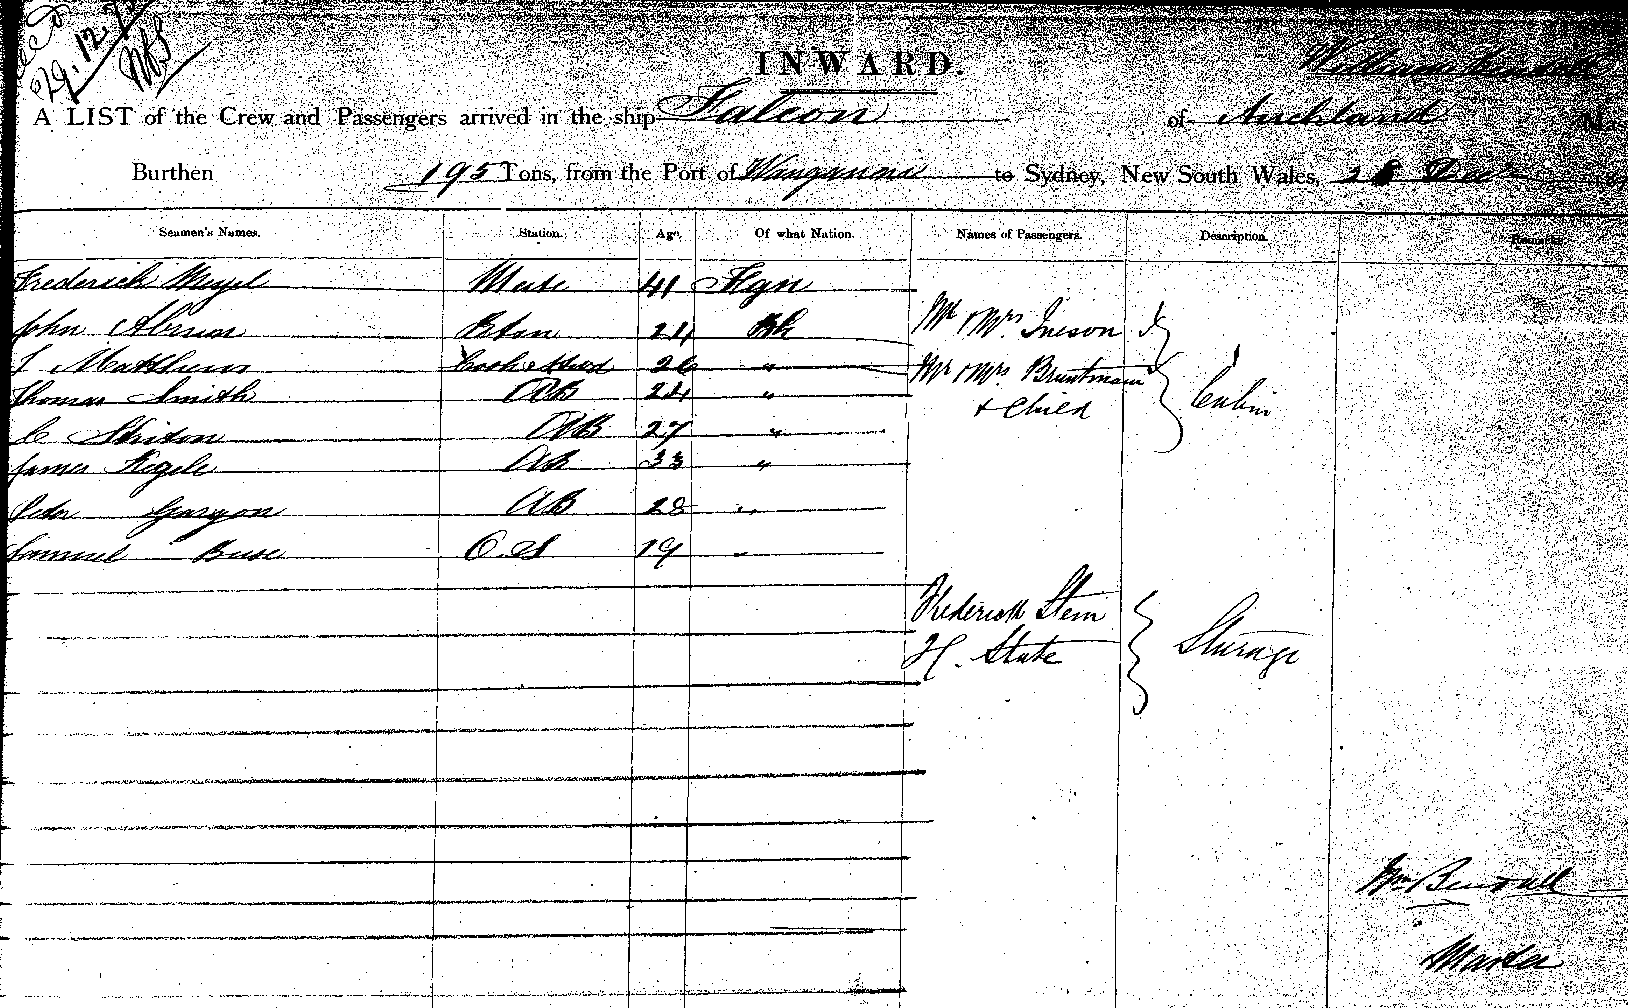 29.12.75
INWARD.
A LIST of the Crew and Passengers arrived in the ship Falcon of Auckland
Burthen 195 Tons, from the Port of Wanganui to Sydney, New South Wales, 28 Decr
Seamen's Names. Station. Age. Of what Nation. Names of Passengers. Description. Remarks.
Frederick Mate 41 Fgn
John 24 Bh Mr & Mrs Ineson
Matthews Cook & Stwd 26 " Mr & Mrs Bruntman
Thomas Smith AB 24 " & Child Cabin
C AB 27 "
James AB 33 "
Peter AB 28 "
Samuel Buse O.S 19 "
Frederick Stein
H. State Sturage
Wm Bendall
Master